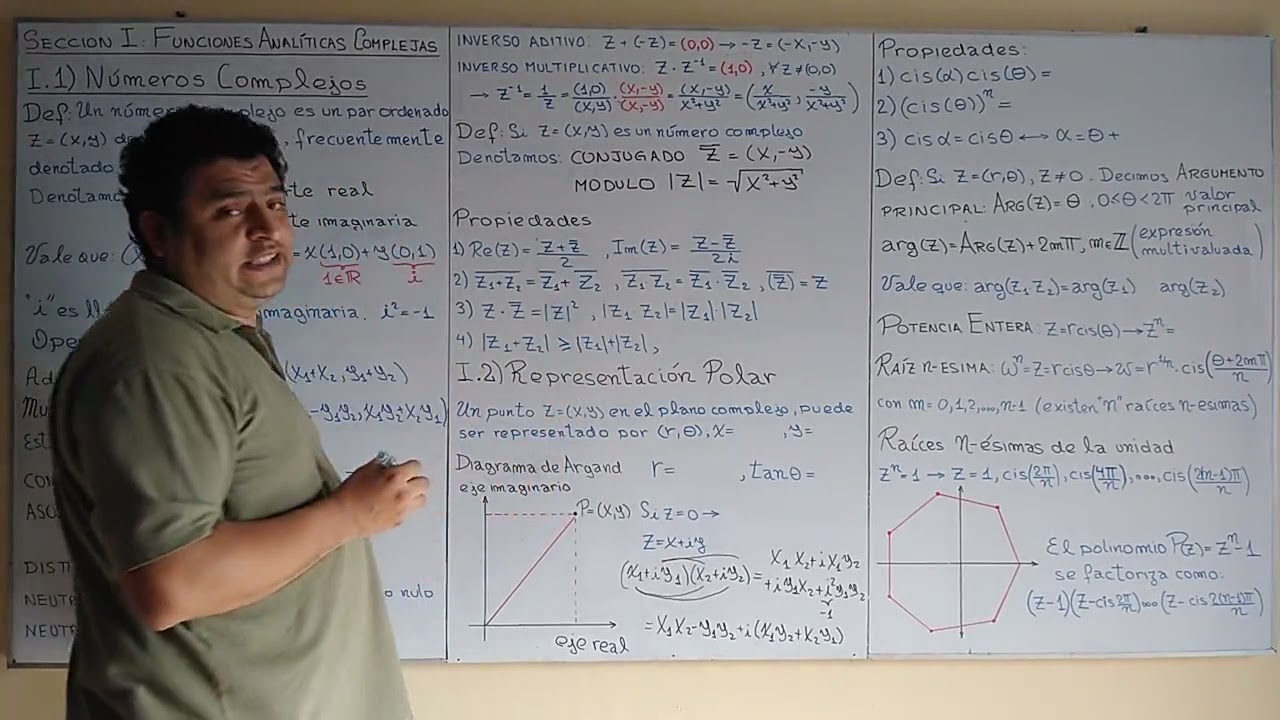 SECCION I: FUNCIONES ANALÍTICAS COMPLEJAS
I.1) Números Complejos
Def: Un núme plejo es un par ordenado
Z=(x,y) de , frecuentemente
denotado
Denotamo te real
te imaginaria
Vale que: (X =x(1,0)+y(0,1)
1∈ℝ i
"i" es ll imaginaria. i²=-1
Ope
Ad (X₁+X₂, y₁+y₂)
Mu -y₁y₂, x₁y₂+x₂y₁)
Est
CON
ASO
DISTR
NEUTR o nulo
NEUTR
INVERSO ADITIVO: Z+(-Z)=(0,0)→-Z=(-X,-y)
INVERSO MULTIPLICATIVO: Z·Z⁻¹=(1,0), ∀Z≠(0,0)
→ Z⁻¹=1/Z=(1,0)/(X,y)·(X,-y)/(X,-y)=(X,-y)/(X²+y²)=(X/(X²+y²), -y/(X²+y²))
Def: Si Z=(x,y) es un número complejo
Denotamos: CONJUGADO Z̅=(X,-y)
MODULO |Z|=√(X²+y²)
Propiedades
1) Re(Z)=(Z+Z̅)/2, Im(Z)=(Z-Z̅)/2i
2) \overline{Z₁+Z₂}=Z̅₁+Z̅₂, \overline{Z₁Z₂}=Z̅₁·Z̅₂, \overline{(Z̅)}=Z
3) Z·Z̅=|Z|², |Z₁Z₂|=|Z₁|·|Z₂|
4) |Z₁+Z₂|≥|Z₁|+|Z₂|,
I.2) Representación Polar
Un punto Z=(x,y) en el plano complejo, puede
ser representado por (r,θ), x= , y=
Diagrama de Argand r= , tanθ=
eje imaginario
P=(X,y) Si Z=0→
Z=x+iy
(x₁+iy₁)(x₂+iy₂)= X₁X₂+iX₁y₂
+iy₁X₂+i²y₁y₂
-1
=X₁X₂-y₁y₂+i(X₁y₂+X₂y₁)
eje real
Propiedades:
1) cis(α)cis(θ)=
2) (cis(θ))ⁿ=
3) cisα=cisθ⟷α=θ+
Def: Si Z=(r,θ), Z≠0. Decimos ARGUMENTO
PRINCIPAL: ARG(Z)=θ, 0≤θ<2π valor
principal
arg(Z)=ARG(Z)+2mπ, m∈ℤ (expresión
multivaluada)
Vale que: arg(Z₁Z₂)=arg(Z₁) arg(Z₂)
POTENCIA ENTERA: Z=rcis(θ)→Zⁿ=
RAÍZ n-ESIMA: ωⁿ=Z=rcisθ→ω=r^{1/n}·cis((θ+2mπ)/n)
con m=0,1,2,...,n-1 (existen "n" raíces n-esimas)
Raíces n-ésimas de la unidad
Zⁿ=1→Z=1, cis(2π/n), cis(4π/n), ..., cis(2(n-1)π/n)
El polinomio P(z)=Zⁿ-1
se factoriza como:
(Z-1)(Z-cis 2π/n)...(Z-cis 2(n-1)π/n)